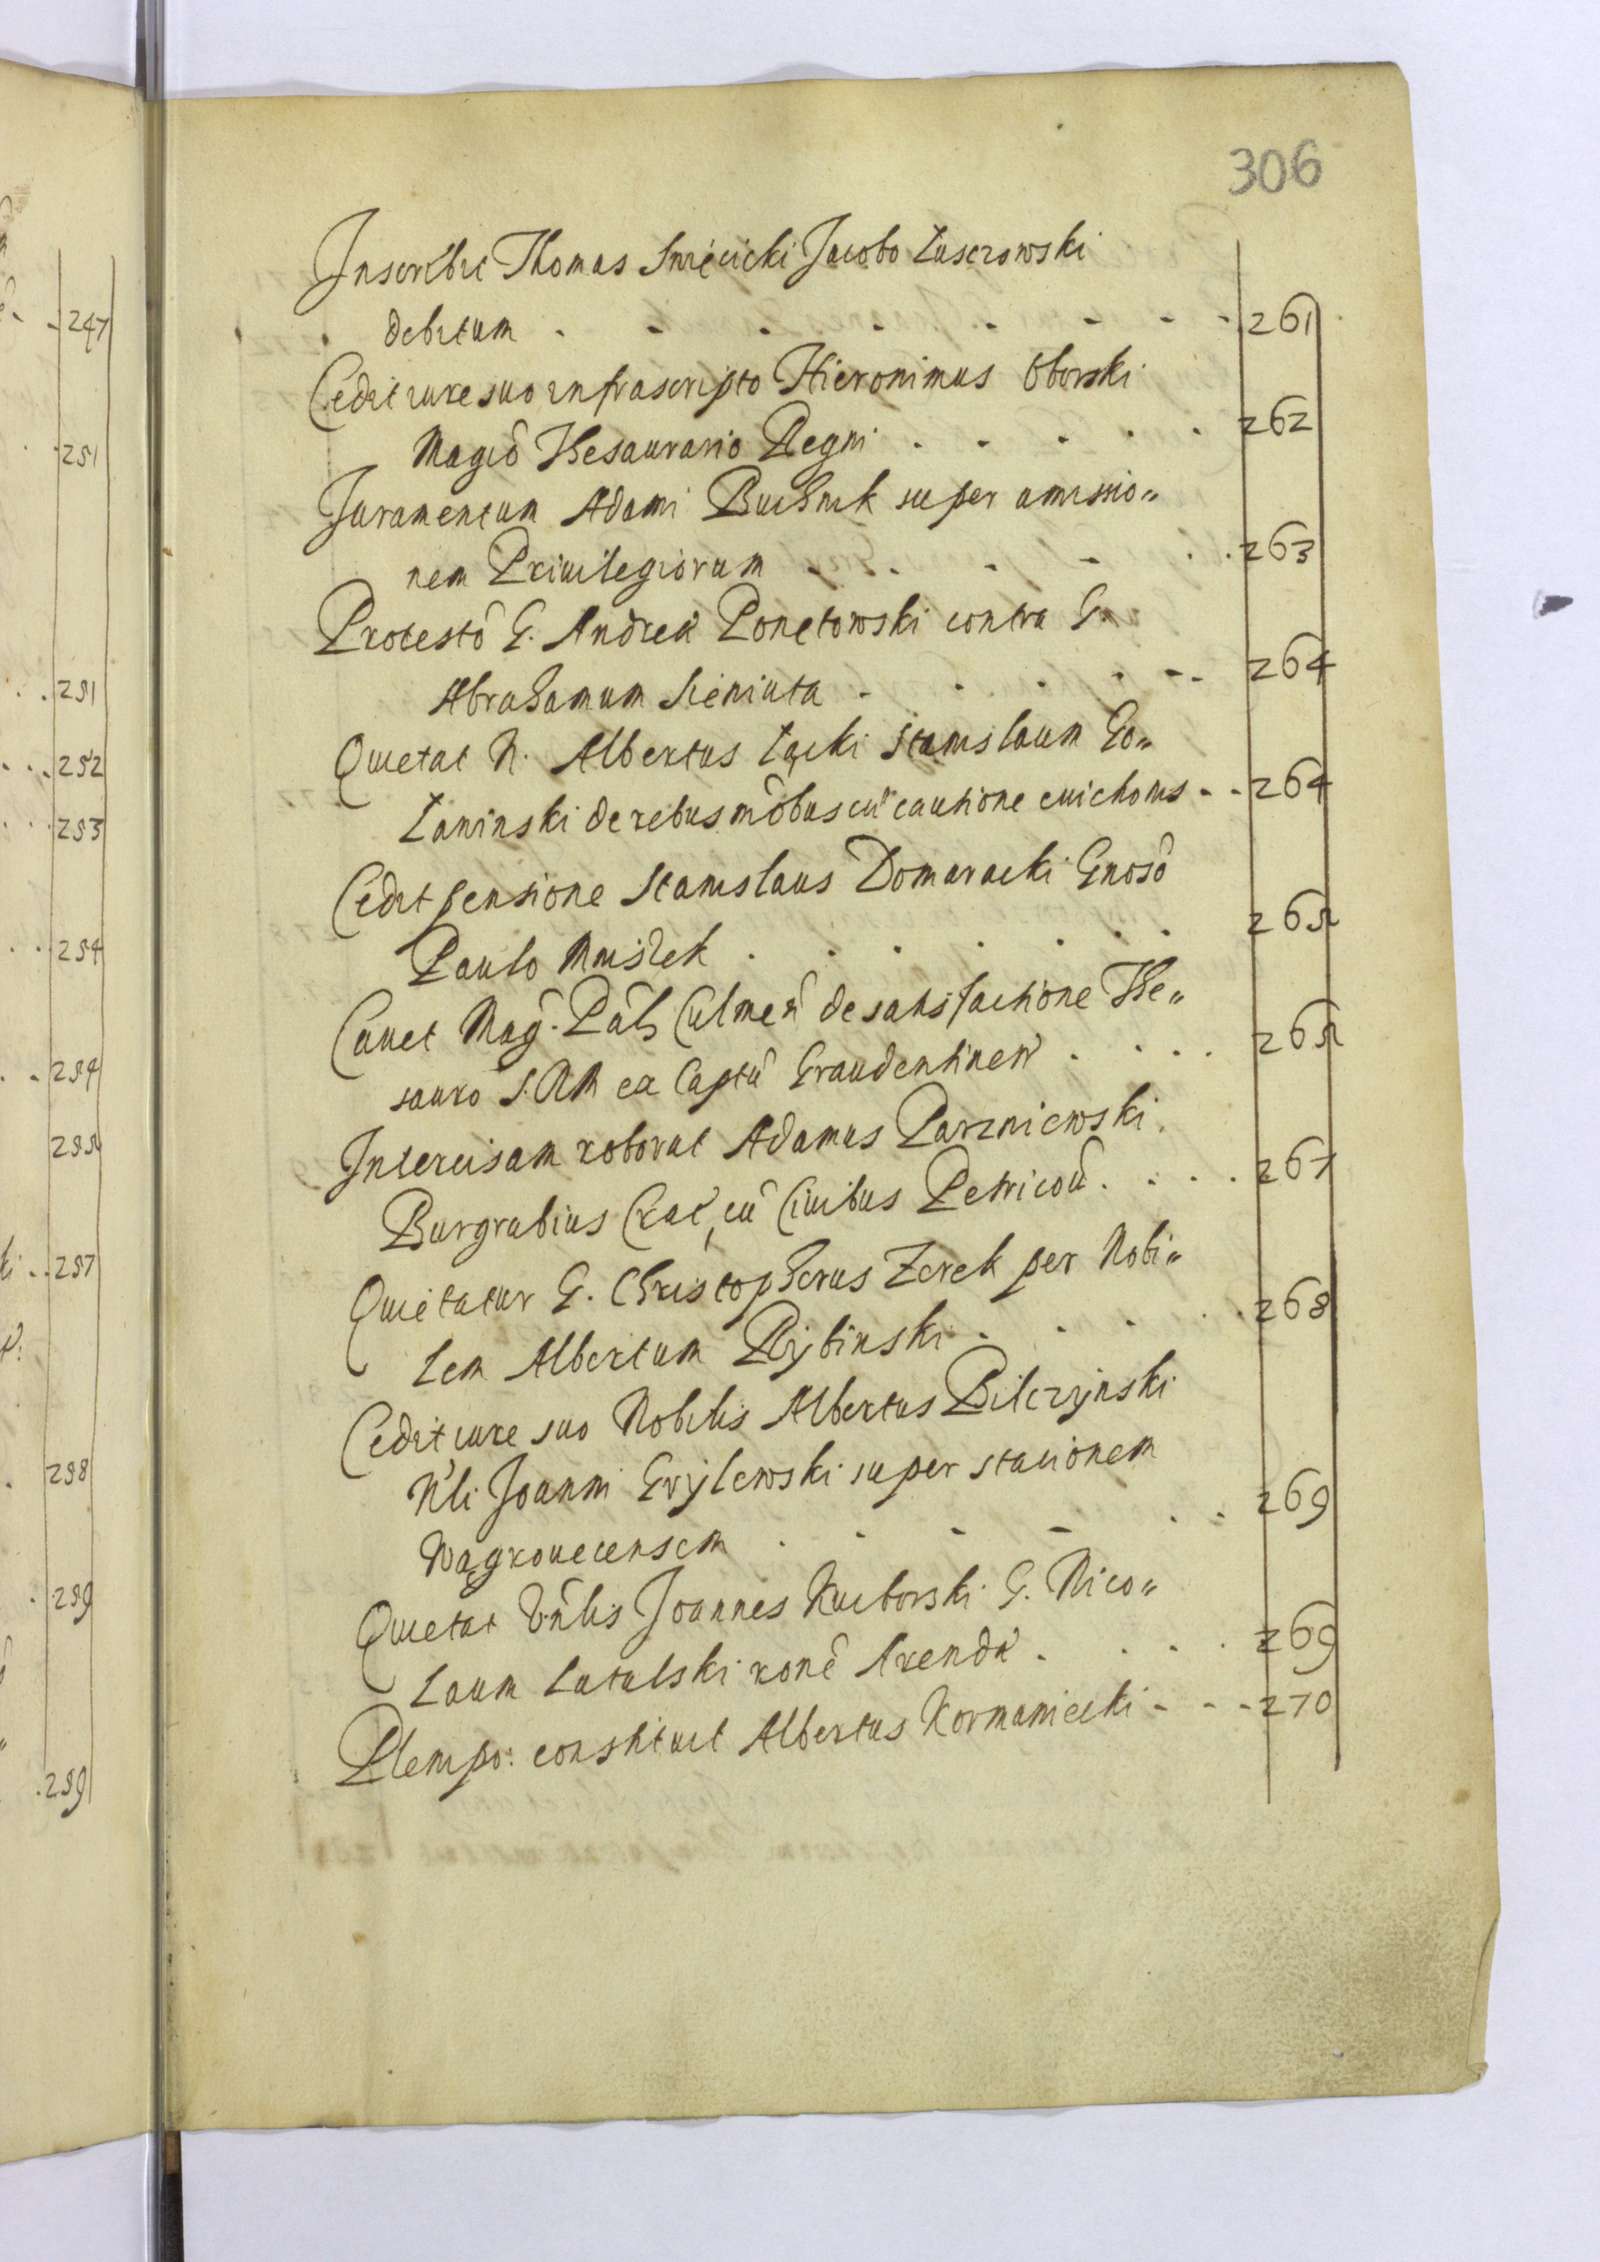 306
Inscribit Thomas Smięcicki Jacobo Łuszczowski
debitum . - . . - - - - 261
Cedit iure suo infrascripto Hieronimus Oborski
Magcô Thesaurario Regni . . . . . 262
Juramentum Adami Buchnik super amissio„
nem Priuilegiorum . . . - . . 263
Protestô G. Andreæ Ponetowski contra G.
Abrahamum Sieniuta . . . . - - 264
Quietat N. Albertus Łącki Stanislaum Go„
łaninski de rebus môbus cũ cautione euictionis - - 264
Cedit pensione Stanislaus Domaracki Gnosô
Paulo Mniszek . . . . . . 265
Cauet Mag. Pals Culmeñ de satisfactione The„
sauro S. R M ea Captũ Graudentineñ . . . . 265
Intercisam roborat Adamus Parzniewski
Burgrabius Crac, cũ Ciuibus Petricoũ . . . . 267
Quietatur G. Christopherus Zerek per Nobi„
lem Albertum Rÿbinski . . . . . 268
Cedit iure suo Nobilis Albertus Pilczÿnski
Nli Joanni Grÿlewski super stacionem
Wągrouecensem . . - - . . 269
Quietat Vñlis Joannes Kuiborski G. Nico„
laum Latalski ronê Arendæ . . . . 269
Plenipo: constituit Albertus Kormaniecki - - - 270
247
251
251
252
253
254
254
255
257
258
259
259